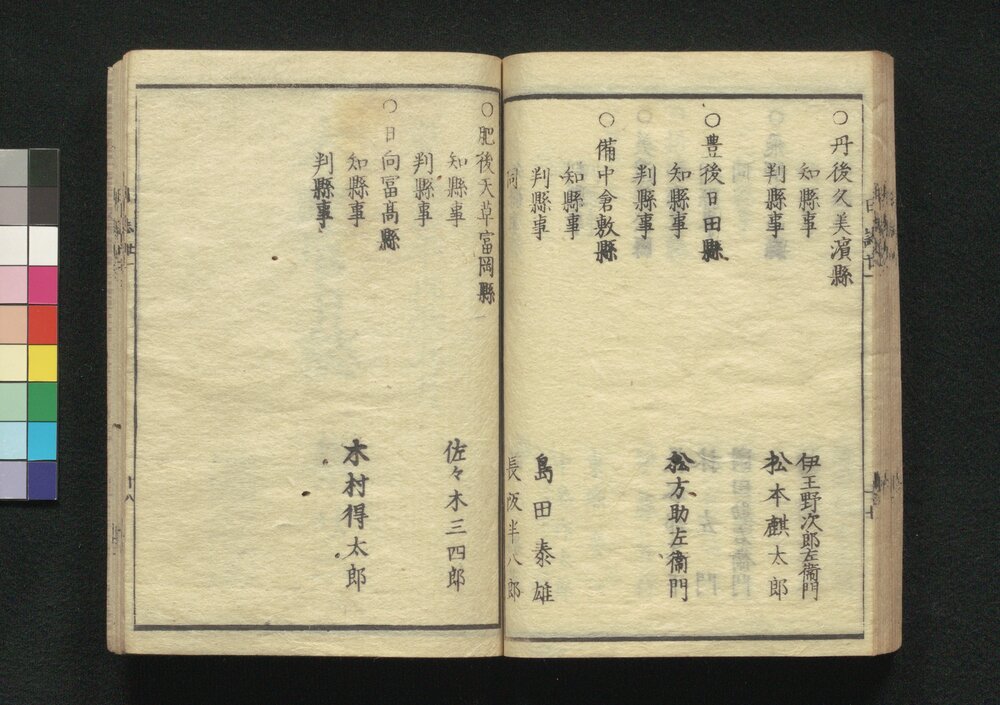 ○丹後久美濱縣
知縣事 伊王野次郎左衞門
判縣事 松本麒太郎
○豊後日田縣
知縣事 松方助左衞門
判縣事
○備中倉敷縣
知縣事
判縣事 島田泰雄
同 長阪半八郎
○肥後天草富岡縣
知縣事 佐々木三四郎
判縣事
○日向冨髙縣
知縣事 木村得太郎
判縣事